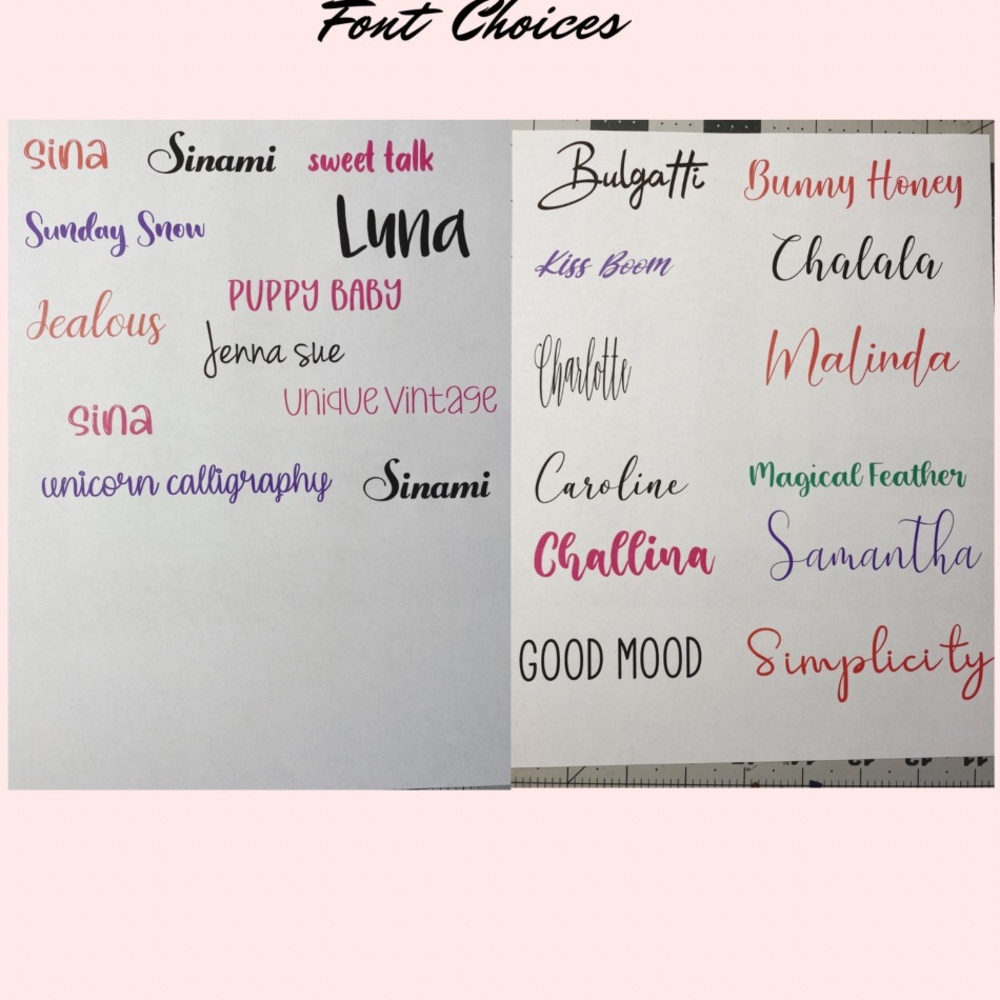 Font Choices
sina Sinami sweet talk
Sunday Snow Luna
PUPPY BABY
Jealous
Jenna sue
unique vintage
sina
unicorn calligraphy Sinami
Bulgatti Bunny Honey
Kiss Boom Chalala
Charlotte Malinda
Caroline Magical Feather
Challina Samantha
GOOD MOOD Simplicity